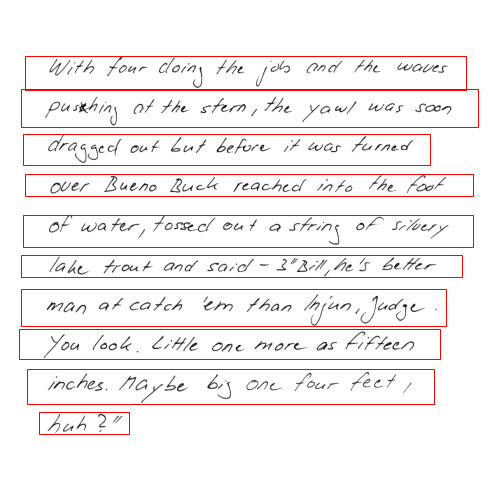 With four doing the job and the waves
pushing at the stern, the yawl was soon
dragged out but before it was turned
over Bueno Buck reached into the foot
of water, tossed out a string of silvery
lake trout and said - 3" Bill, he's better
man at catch 'em than Injun, Judge.
You look. Little one more as fifteen
inches. Maybe big one four feet,
huh?"